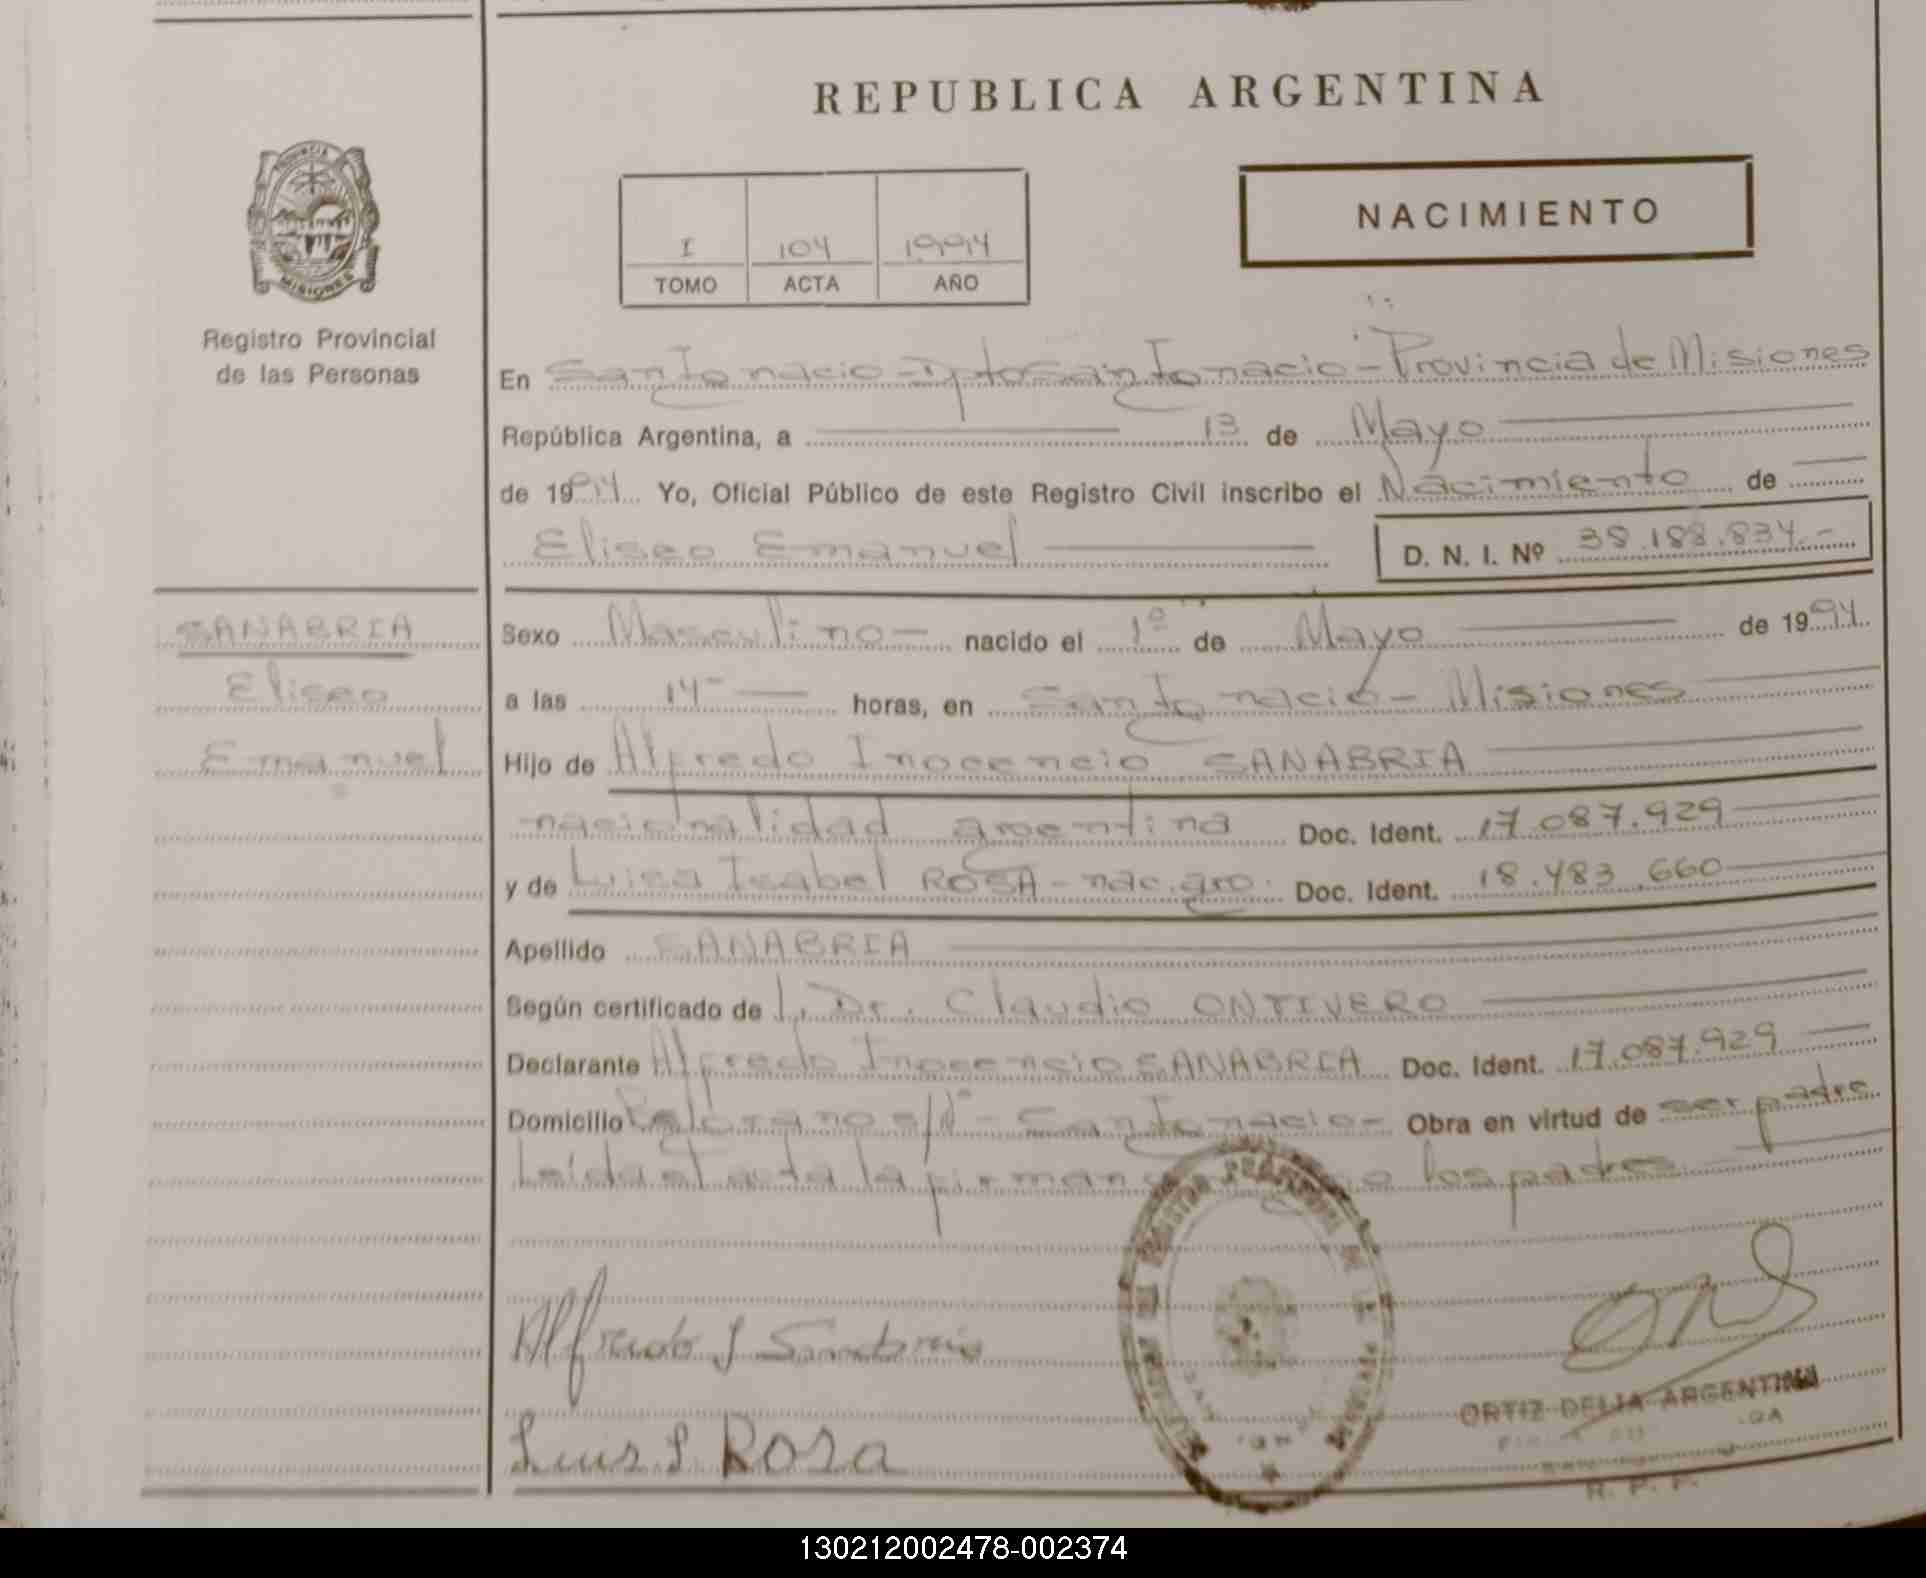 REPUBLICA ARGENTINA
PROVINCIA
MISIONES
Registro Provincial
de las Personas
NACIMIENTO
I 104 1994
TOMO ACTA AÑO
En San Ignacio - Dpto San Ignacio - Provincia de Misiones
República Argentina, a 13 de Mayo
de 1994 Yo, Oficial Público de este Registro Civil inscribo el Nacimiento de
Eliseo Emanuel D. N. I. Nº 38.188.834.-
SANABRIA
Eliseo
Emanuel
Sexo Masculino - nacido el 1º de Mayo de 1994
a las 14 horas, en San Ignacio - Misiones
Hijo de Alfredo Inocencio SANABRIA
nacionalidad argentina Doc. Ident. 17.087.929
y de Luisa Isabel ROSA - nac. arg. Doc. Ident. 18.483.660
Apellido SANABRIA
Según certificado de l. Dr. Claudio ONTIVERO
Declarante Alfredo Inocencio SANABRIA Doc. Ident. 17.087.929
Domicilio Belgrano s/nº - San Ignacio - Obra en virtud de ser padre
Leída el acta la firman los padres
Alfredo I Sanabria
Luis I Rosa
ORTIZ DELIA ARGENTINA
R. P. P.
130212002478-002374